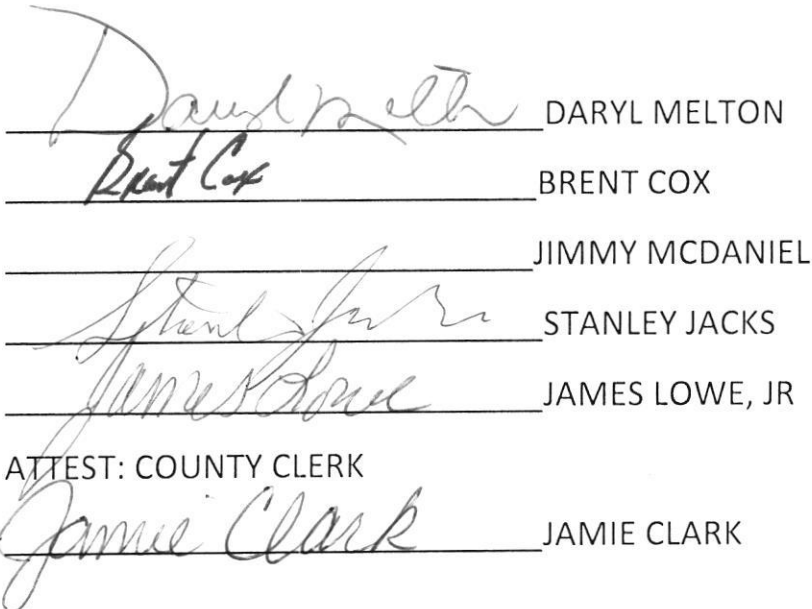 Daryl Melton DARYL MELTON
Brent Cox BRENT COX
JIMMY MCDANIEL
STANLEY JACKS
James Lowe JAMES LOWE, JR
ATTEST: COUNTY CLERK
Jamie Clark JAMIE CLARK